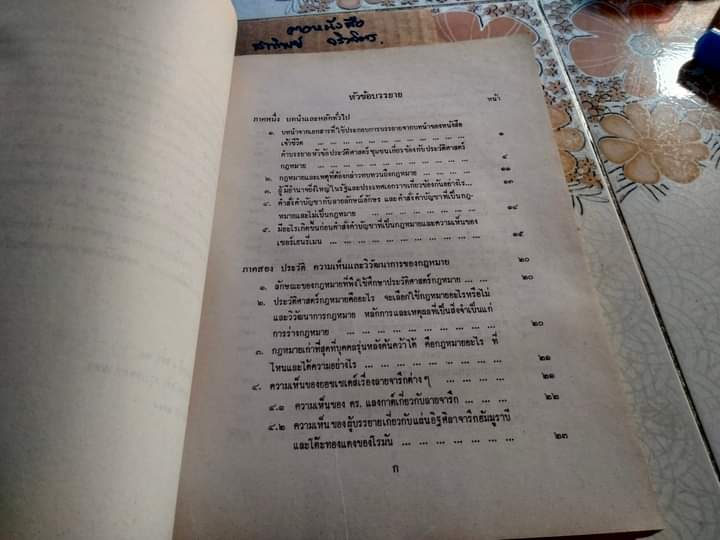 หัวข้อบรรยาย
หน้า
ภาคหนึ่ง บทนำและหลักทั่วไป
๑. บทนำจากเอกสารที่ใช้ประกอบการบรรยายจากบทนำของหนังสือ
เจ้าชีวิต ... ... ... ... ... ... ... ... ... ... ๑
คำบรรยายหัวข้อประวัติศาสตร์ชุมชนเกี่ยวข้องกับประวัติศาสตร์
กฎหมาย ... ... ... ... ... ... ... ... ... ... ๔
๒. กฎหมายและเหตุที่ต้องกล่าวทบทวนถึงกฎหมาย ... ... ... ... ๑๑
๓. ผู้มีอำนาจยิ่งใหญ่ในรัฐและประเทศเอกราชเกี่ยวข้องกันอย่างไร... ๑๓
๔. คำสั่งคำบัญชากับลายลักษณ์อักษร และคำสั่งคำบัญชาที่เป็นกฎ-
หมายและไม่เป็นกฎหมาย ... ... ... ... ... ... ... ๑๔
๕. มีอะไรเกิดขึ้นก่อนคำสั่งคำบัญชาที่เป็นกฎหมายและความเห็นของ
เซอร์เฮนรี่เมน ... ... ... ... ... ... ... ... ... ... ๑๕
ภาคสอง ประวัติ ความเห็นและวิวัฒนาการของกฎหมาย ๒๐
๑. ลักษณะของกฎหมายที่พึงใช้ศึกษาประวัติศาสตร์กฎหมาย ... ... ๒๐
๒. ประวัติศาสตร์กฎหมายคืออะไร จะเลือกใช้กฎหมายอะไรหรือไม่
และวิวัฒนาการกฎหมาย หลักการและเหตุผลที่เป็นสิ่งจำเป็นแก่
การร่างกฎหมาย ... ... ... ... ... ... ... ... ... ๒๐
๓. กฎหมายเก่าที่สุดที่บุคคลรุ่นหลังค้นคว้าได้ คือกฎหมายอะไร ที่
ไหนและได้ความอย่างไร ... ... ... ... ... ... ... ... ๒๑
๔. ความเห็นของยอซเซเดส์เรื่องลายจารึกต่าง ๆ ... ... ... ... ๒๑
๔.๑ ความเห็นของ ดร. แลงกาต์เกี่ยวกับลายจารึก ... ... ... ๒๒
๔.๒ ความเห็นของผู้บรรยายเกี่ยวกับแผ่นอิฐศิลาจารึกฮัมมูราบี
และโต๊ะทองแดงของโรมัน ... ... ... ... ... ... ... ๒๓
ก